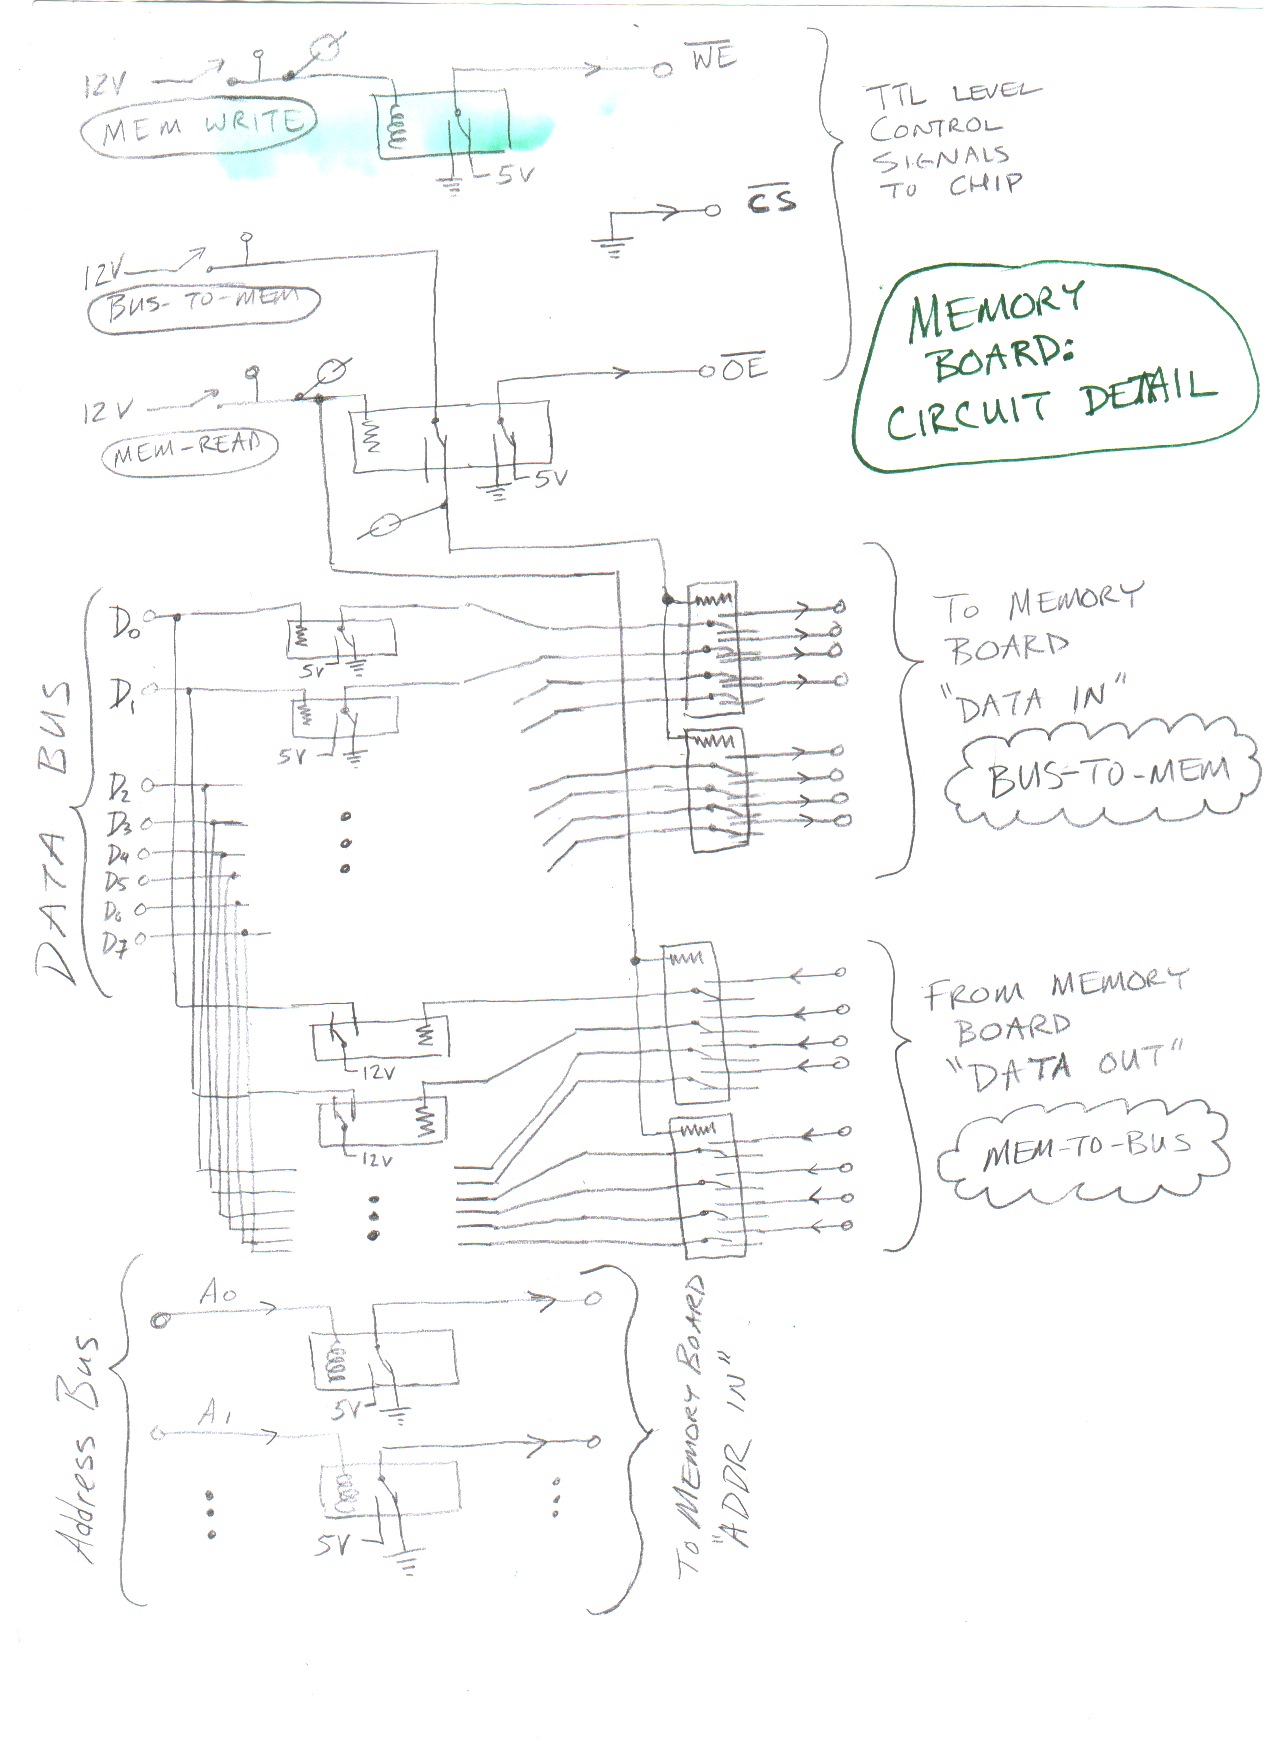 12V
MEM WRITE
5V
W̅E̅
C̅S̅
TTL LEVEL
CONTROL
SIGNALS
TO CHIP
12V
BUS-TO-MEM
MEMORY
BOARD:
CIRCUIT DETAIL
12V
MEM-READ
5V
O̅E̅
DATA BUS
D0
5V
D1
5V
D2
D3
D4
D5
D6
D7
TO MEMORY
BOARD
"DATA IN"
BUS-TO-MEM
12V
12V
FROM MEMORY
BOARD
"DATA OUT"
MEM-TO-BUS
Address Bus
A0
5V
A1
5V
TO MEMORY BOARD
"ADDR IN"